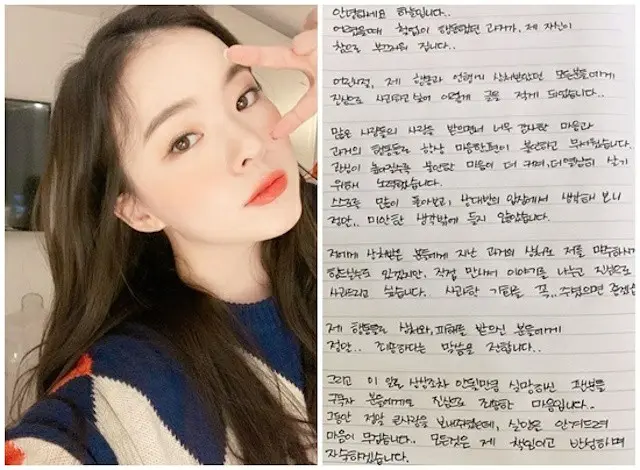 안녕하세요 하늘입니다..
어렸을때 철없이 행동했던 과거가, 제 자신이
참으로 부끄러워 집니다..
어린시절, 제 행동과 언행에 상처받았던 모든분들에게
진심으로 사과하고싶어 이렇게 글을 적게 되었습니다..
많은 사람들의 사랑을 받으면서 너무 감사한 마음과
과거의 행동들로 항상 마음한편이 불안하고 무서웠습니다..
관심이 높아질수록 불안한 마음이 더 커져, 더 열심히 살기
위해 노력했습니다..
스스로 많이 돌아보고, 상대방의 입장에서 생각해 보니
정말.. 미안한 생각밖에 들지 않았습니다.
저에게 상처받은 분들에게 지난 과거의 상처로 저를 마주하시기
힘드실수도 있겠지만, 직접 만나서 이야기를 나누고 진심으로
사과드리고 싶습니다. 사과할 기회를 꼭.. 주셨으면 좋겠습
제 행동들로 상처와, 피해를 받으신 분들에게
정말.. 죄송하다는 말씀을 전합니다..
그리고 이 일로 상상조차 안될만큼 실망하신 팬분들
구독자 분들에게도 진심으로 죄송한 마음입니다..
그동안 정말 큰사랑을 보내주셨는데, 실망을 안겨드려
마음이 무겁습니다.. 모든것은 제 책임이고 반성하며
자숙하겠습니다.